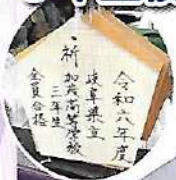 令和六年度
岐阜県立
祈 加茂高等学校
三年生
全員合格